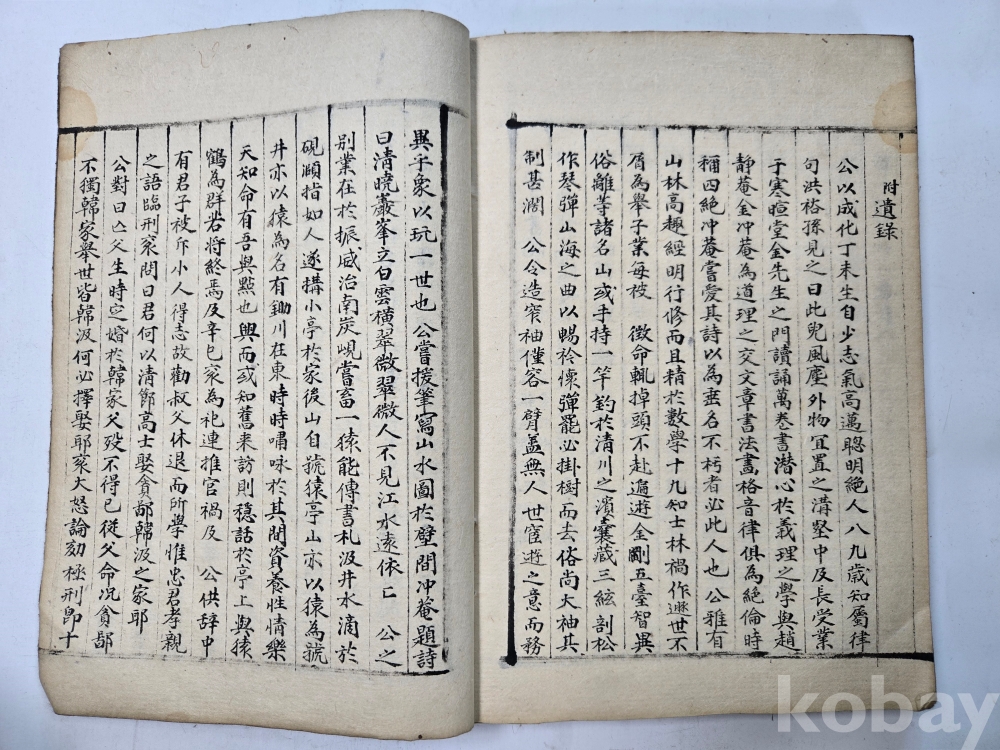 附遺錄
公以成化丁未生自少志氣高邁聰明絕人八九歲知屬律
句洪裕孫見之曰此兒風塵外物宜置之溝壑中及長受業
于寒暄堂金先生之門讀誦萬卷書潛心於義理之學與趙
靜菴金冲菴為道理之交文章書法畵格音律俱為絕倫時
稱四絕冲菴嘗愛其詩以為垂名不朽者必此人也 公雅有
山林高趣經明行修而且精於數學十九知士林禍作遯世不
屑為舉子業每被 徵命輒掉頭不赴遍遊金剛五臺智異
俗離等諸名山或手持一竿釣於清川之濱囊藏三絃剖松
作琴彈山海之曲以暢於懷彈罷必掛樹而去俗尚大袖其
制甚濶 公令造窄袖僅容一臂盖無人世宦遊之意而務
異乎衆以玩一世也 公嘗援筆寫山水圖於壁間冲菴題詩
曰清曉巖峯立白雲橫翠微翠微人不見江水遠依匕 公之
別業在於振威治南炭峴嘗畜一猿能傳書札汲井水滴於
硯頤指如人遂搆小亭於家後山自號猿亭山亦以猿為號
井亦以猿為名有鋤川在東時時嘯咏於其間資養性情樂
天知命有吾與點也興而或知舊来訪則穩話於亭上與猿
鶴為群若將終焉及辛巳衮為祀連推官禍及 公供辞中
有君子被斥小人得志故勸叔父休退而所學惟忠君孝親
之語臨刑衮問曰君何以清節高士娶貪鄙韓汲之家耶
公對曰亡父生時定婚於韓家父歿不得已從父命况貪鄙
不獨韓家舉世皆韓汲何必擇娶耶衮大怒論劾極刑昂十
kobay